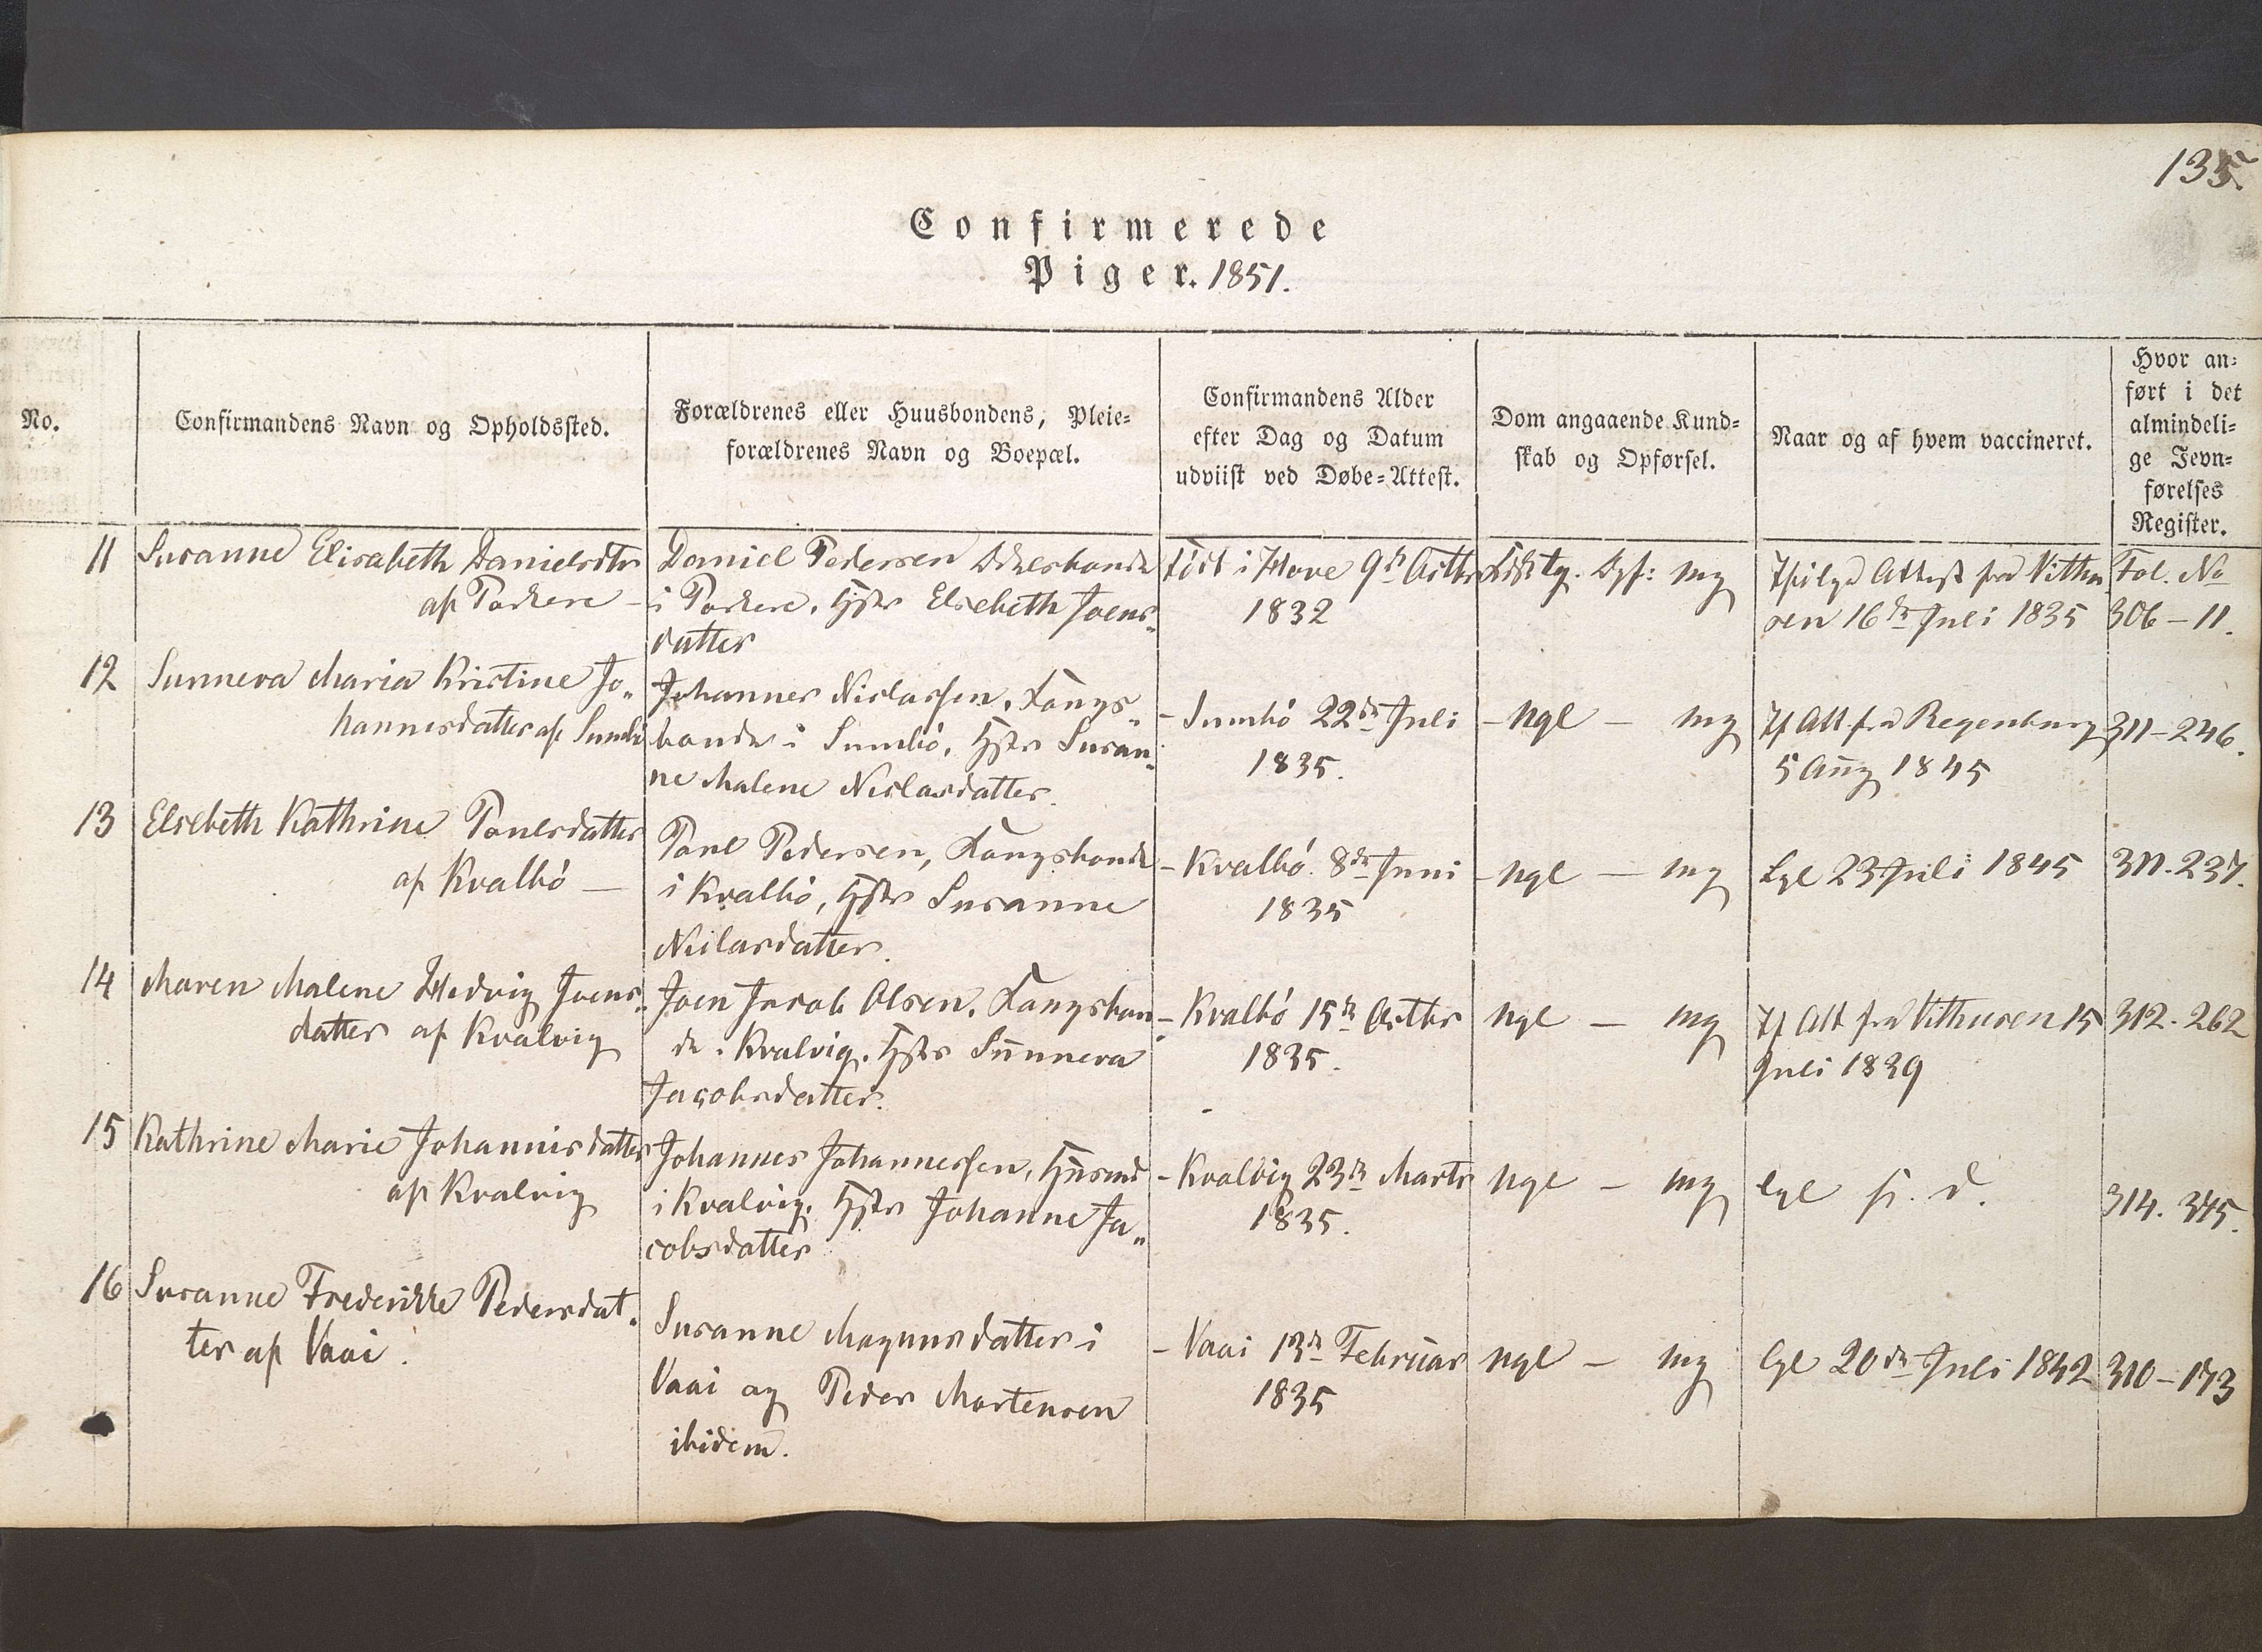 135.
Confirmerede
Piger. 1851.
No.
Confirmandens Navn og Opholdssted.
Forældrenes eller Huusbondens, Pleie-
forældrenes Navn og Boepæl.
Confirmandens Alder
efter Dag og Datum
udviist ved Døbe-Attest.
Dom angaaende Kund-
skab og Opførsel.
Naar og af hvem vaccineret.
Hvor an-
ført i det
almindeli-
ge Jevn-
førelses
Register.
11 Susanne Elisabeth Danielsdtr
af Porkere –
Daniel Pedersen
i Porkere, Hstr Elsebeth Joens-
datter
Född i Hove 9d Octbr
1832
tg. Opf: mg
Ifølge Attest fra Vithu
sen 16de Juli 1835
Fol. No
306 – 11.
12 Sunneva Maria Kristine Jo-
hannesdatter af Sumbö
Johannes Niclassen, Kongs-
bonde i Sumbö, Hstr Susan-
ne Malene Niclasdatter.
– Sumbö 22de Juli
1835.
– ngl – mg
If Att fra Regenburg
5 Aug 1845
311 – 246.
13 Elsebeth Kathrine Poulsdatter
af Kvalbö –
Poul Pedersen, Kongsbonde
i Kvalbö, Hstr Susanne
Niclasdatter.
– Kvalbö 8de Juni
1835
– ngl – mg
Lgl 23 Juli 1845
311. 237.
14 Maren Malene Hedvig Joens-
datter af Kvalvig
Joen Jacob Olsen, Kongsbon-
de i Kvalvig, Hstr Sunneva
Jacobsdatter.
– Kvalbö 15de Octbr
1835.
ngl – mg
If Att fra Vithusen 15
Juli 1839
312. 262
15 Kathrine Marie Johannisdatter
af Kvalvig
Johannes Johannessen, Husmd
i Kvalvig, Hstr Johanne Ja-
cobsdatter
– Kvalvig 23de Marts
1835.
ngl – mg
lgl s. d.
314. 345.
16 Susanne Frederikke Pedersdat-
ter af Vaai.
Susanne Magnusdatter i
Vaai og Peder Mortensen
ibidem.
– Vaai 13de Februar
1835
ngl – mg
lgl 20de Juli 1842
310 – 173